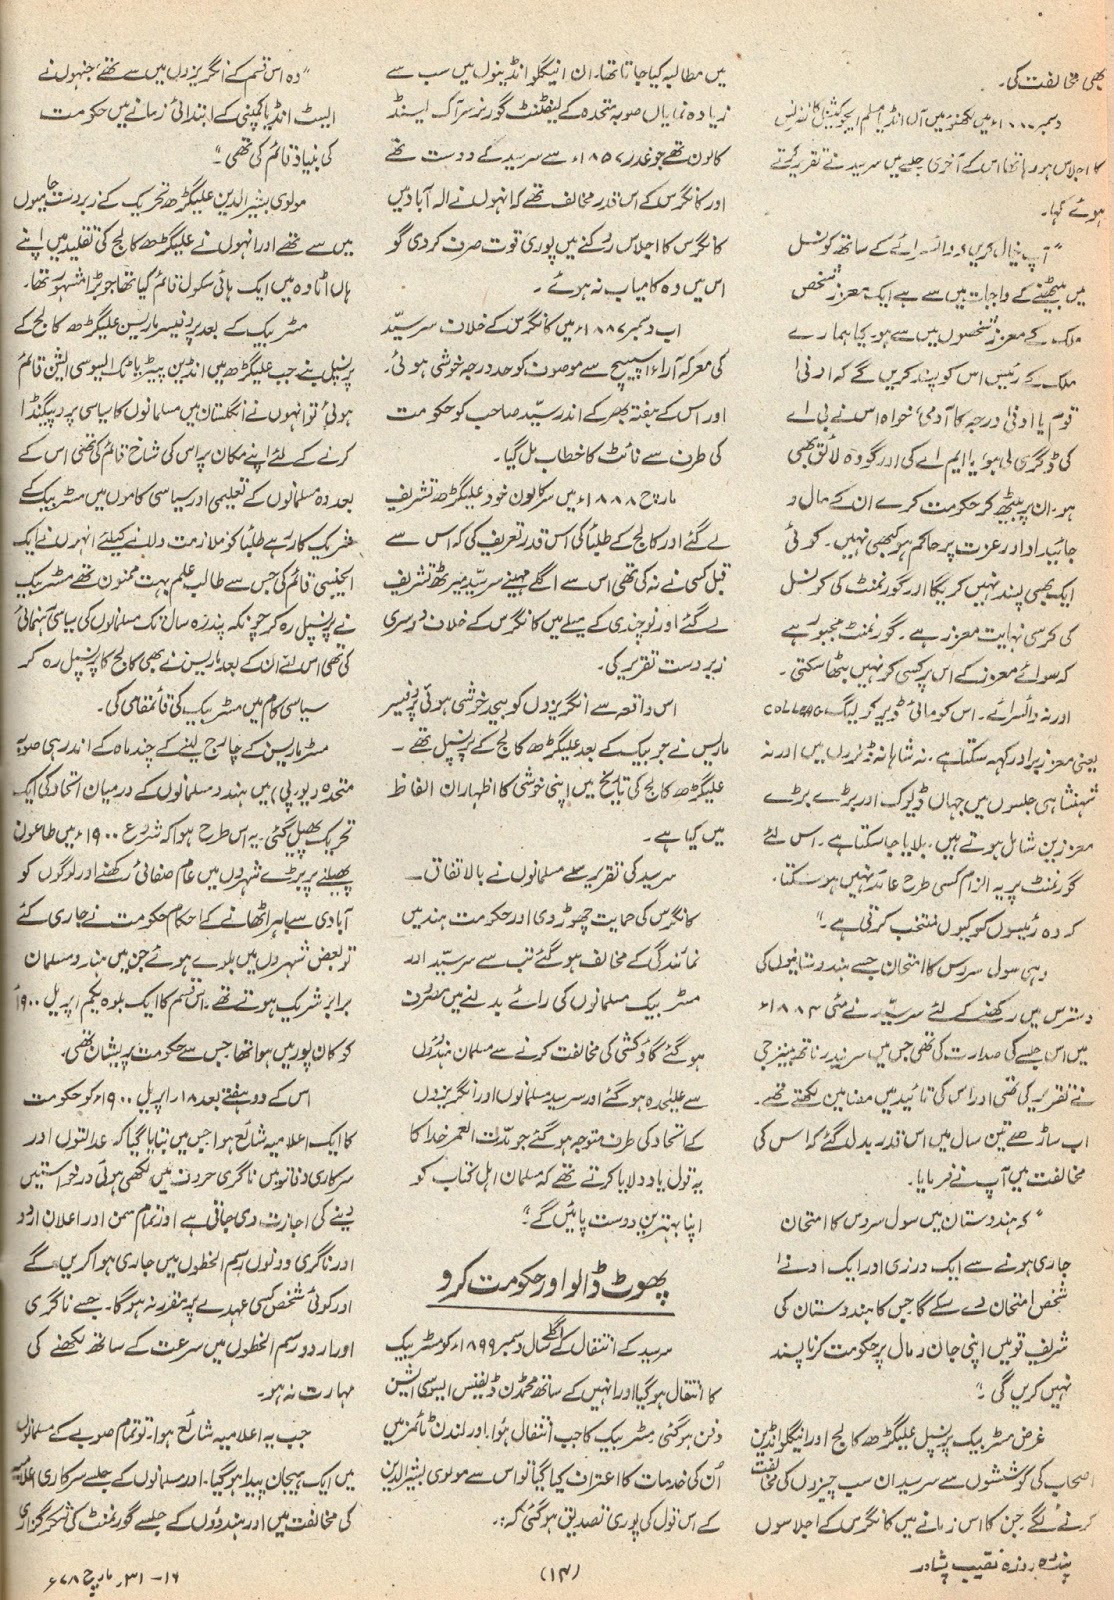 بھی مخالفت کی۔
دسمبر ۱۸۰۰ء میں لکھنؤ میں آل انڈیا مسلم ایجوکیشنل کانفرنس
کا اجلاس ہو رہا تھا اس کے آخری جلسے میں سرسید نے تقریر کرتے
ہوئے کہا۔
"آپ خیال کریں کہ وائسرائے کے ساتھ کونسل
میں بیٹھنے کے واجبات میں سے ہے ایک معزز شخص
ملک کے معزز شخصوں میں سے ہو۔ کیا ہمارے
ملک کے رئیس اس کو پسند کریں گے کہ ادنیٰ
قوم یا ادنیٰ درجہ کا آدمی خواہ اس نے بی اے
کی ڈگری لی ہو یا ایم اے کی اور گو وہ لائق بھی
ہو۔ ان پر بیٹھ کر حکومت کرے ان کے مال و
جائیداد اور عزت پر حاکم ہو کبھی نہیں۔ کوئی
ایک بھی پسند نہیں کریگا اور گورنمنٹ کی کونسل
کی کرسی نہایت معزز ہے۔ گورنمنٹ مجبور ہے
کہ سوائے معزز کے اس پر کسی کو نہیں بٹھا سکتی۔
اور نہ وائسرائے۔ اس کو مائی ڈیر کولیگ COLLEAG
یعنی معزز برادر کہہ سکتا ہے۔ نہ شاہانہ ڈنروں میں اور نہ
شہنشاہی جلسوں میں جہاں ڈیوک اور بڑے بڑے
معززین شامل ہوتے ہیں۔ بلایا جا سکتا ہے۔ اس لئے
گورنمنٹ پر یہ الزام کسی طرح عائد نہیں ہو سکتا۔
کہ وہ رئیسوں کو کیوں منتخب کرتی ہے۔"
وہی سول سروس کا امتحان جسے ہندوستانیوں کی
دسترس میں رکھنے کے لئے سرسیّد نے مئی ۱۸۸۴ء
میں اس جلسے کی صدارت کی تھی جس میں سرندر ناتھ بینرجی
نے تقریر کی تھی اور اس کی تائید میں مضامین لکھتے تھے۔
اب ساڑھے تین سال میں اس قدر بدل گئے کہ اس کی
مخالفت میں آپ نے فرمایا۔
"کہ ہندوستان میں سول سروس کا امتحان
جاری ہونے سے ایک درزی اور ایک ادنےٰ
شخص امتحان دے سکے گا جس کا ہندوستان کی
شریف قومیں اپنی جان و مال پر حکومت کرنا پسند
نہیں کریں گی۔"
غرض مسٹر بیک پرنسپل علیگڑھ کالج اور اینگلو انڈین
اصحاب کی کوششوں سے سرسید ان سب چیزوں کی مخالفت
کرنے لگے۔ جن کا اس زمانے میں کانگرس کے اجلاسوں
میں مطالبہ کیا جاتا تھا۔ ان اینگلو انڈینوں میں سب سے
زیادہ نمایاں صوبہ متحدہ کے لیفٹنٹ گورنر سر آک لینڈ
کالون تھے جو غدر ۱۸۵۷ء سے سرسید کے دوست تھے
اور کانگرس کے اس قدر مخالف تھے کہ انہوں نے الہ آباد میں
کانگرس کا اجلاس روکنے میں پوری قوت صرف کر دی گو
اس میں وہ کامیاب نہ ہوئے۔
اب دسمبر ۱۸۸۷ء میں کانگرس کے خلاف سرسیّد
کی معرکہ آراء اسپیچ سے موصوف کو حد درجہ خوشی ہوئی۔
اور اس کے ہفتہ بھر کے اندر سیّد صاحب کو حکومت
کی طرف سے نائٹ کا خطاب مل گیا۔
مارچ ۱۸۸۸ء میں سر کالون خود علیگڑھ تشریف
لے گئے اور کالج کے طلباء کی اس قدر تعریف کی کہ اس سے
قبل کسی نے نہ کی تھی اس سے اگلے مہینے سرسیّد میرٹھ تشریف
لے گئے اور نوچندی کے میلے میں کانگرس کے خلاف دوسری
زبردست تقریر کی۔
اس واقعہ سے انگریزوں کو بیحد خوشی ہوئی پروفیسر
ماریسن نے جو بیک کے بعد علیگڑھ کالج کے پرنسپل تھے۔
علیگڑھ کالج کی تاریخ میں اپنی خوشی کا اظہار ان الفاظ
میں کیا ہے۔
سرسید کی تقریر سے مسلمانوں نے بالاتفاق۔
کانگرس کی حمایت چھوڑ دی اور حکومت ہند میں
نمائندگی کے مخالف ہو گئے تب سے سرسیّد اور
مسٹر بیک مسلمانوں کی رائے بدلنے میں مصروف
ہو گئے گاؤ کشی کی مخالفت کرنے سے مسلمان ہندوؤں
سے علیحدہ ہو گئے اور سرسید مسلمانوں اور انگریزوں
کے اتحاد کی طرف متوجہ ہو گئے جو مدت العمر خدا کا
یہ قول یاد دلایا کرتے تھے کہ مسلمان اہل کتاب کو
اپنا بہترین دوست پائیں گے۔"
پھوٹ ڈالو اور حکومت کرو
سرسید کے انتقال کے اگلے سال دسمبر ۱۸۹۹ء کو مسٹر بیک
کا انتقال ہو گیا اور انہیں کے ساتھ محمڈن ڈیفنس ایسوسی ایشن
دفن ہو گئی۔ مسٹر بیک کا جب انتقال ہوا۔ اور لندن ٹائمز میں
اُن کی خدمات کا اعتراف کیا گیا تو اس سے مولوی بشیرالدین
کے اس قول کی پوری تصدیق ہو گئی کہ:۔
"وہ اس قسم کے انگریزوں میں سے تھے جنہوں نے
ایسٹ انڈیا کمپنی کے ابتدائی زمانے میں حکومت
کی بنیاد قائم کی تھی۔"
مولوی بشیر الدین علیگڑھ تحریک کے زبردست حامیوں
میں سے تھے اور انہوں نے علیگڑھ کالج کی تقلید میں اپنے
ہاں اٹاوہ میں ایک ہائی سکول قائم کیا تھا جو بڑا مشہور تھا۔
مسٹر بیک کے بعد پروفیسر ماریسن علیگڑھ کالج کے
پرنسپل بنے جب علیگڑھ میں انڈین پیٹریاٹک ایسوسی ایشن قائم
ہوئی تو انہوں نے انگلستان میں مسلمانوں کا سیاسی پروپیگنڈا
کرنے کے لئے اپنے مکان پر اس کی شاخ قائم کی تھی اس کے
بعد وہ مسلمانوں کے تعلیمی اور سیاسی کاموں میں مسٹر بیک کے
شریک کار رہے طلباء کو ملازمت دلانے کیلئے انہوں نے ایک
ایجنسی قائم کی جس سے طالب علم بہت ممنون تھے مسٹر بیک
نے پرنسپل رہ کر چونکہ پندرہ سال تک مسلمانوں کی سیاسی رہنمائی
کی تھی اس لئے ان کے بعد ماریسن نے بھی کالج کا پرنسپل رہ کر
سیاسی کام میں مسٹر بیک کی قائمقامی کی۔
مسٹر ماریسن کے چارج لینے کے چند ماہ کے اندر ہی صوبہ
متحدہ (یو۔پی) میں ہندو مسلمانوں کے درمیان اتحاد کی ایک
تحریک پھیل گئی۔ یہ اس طرح ہوا کہ شروع ۱۹۰۰ء میں طاعون
پھیلنے پر بڑے شہروں میں عام صفائی رکھنے اور لوگوں کو
آبادی سے باہر اٹھانے کے احکام حکومت نے جاری کئے
تو بعض شہروں میں بلوے ہوئے جن میں ہندو مسلمان
برابر شریک ہوتے تھے۔ اس قسم کا ایک بلوہ یکم اپریل ۱۹۰۰ء
کو کان پور میں ہوا تھا جس سے حکومت پریشان تھی۔
اس کے دو ہفتے بعد ۱۸ اپریل ۱۹۰۰ء کو حکومت
کا ایک اعلامیہ شائع ہوا جس میں بتایا گیا کہ عدالتوں اور
سرکاری دفاتر میں ناگری حروف میں لکھی ہوئی درخواستیں
دینے کی اجازت دی جاتی ہے اور تمام سمن اور اعلان اردو
اور ناگری دونوں رسم الخطوں میں جاری ہوا کریں گے
اور کوئی شخص کسی عہدے پر مقرر نہ ہوگا۔ جسے ناگری
اور اردو رسم الخطوں میں سرعت کے ساتھ لکھنے کی
مہارت نہ ہو۔
جب یہ اعلامیہ شائع ہوا۔ تو تمام صوبے کے مسلمانوں
میں ایک ہیجان پیدا ہو گیا۔ اور مسلمانوں کے جلسے سرکاری اعلامیہ
کی مخالفت میں اور ہندوؤں کے جلسے گورنمنٹ کی شکر گزاری
پندرہ روزہ نقیب پشاور
(۱۴)
۱۶-۳۱ مارچ ۷۸ء